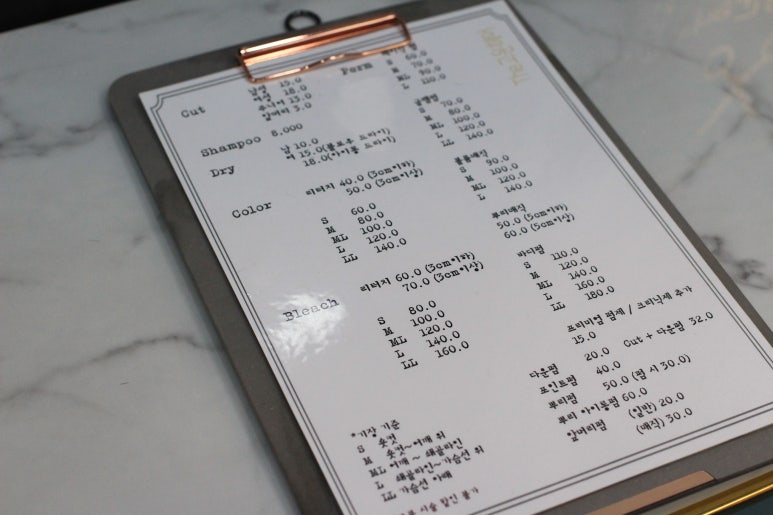 Cut
남성 15.0
여성 18.0
주니어 13.0
앞머리 3.0
Shampoo 8,000
Dry
남 10.0
여 15.0(블로우 드라이)
18.0(아이롱 드라이)
Color
리터치 40.0 (3cm이하)
50.0 (3cm이상)
S 60.0
M 80.0
ML 100.0
L 120.0
LL 140.0
Bleach
리터치 60.0 (3cm이하)
70.0 (3cm이상)
S 80.0
M 100.0
ML 120.0
L 140.0
LL 160.0
*기장 기준
S 숏컷
M 숏컷~어깨 위
ML 어깨 ~ 쇄골라인
L 쇄골라인~가슴선 위
LL 가슴선 아래
시술 할인 불가
Perm
S 60.0
M 70.0
ML 90.0
L 110.0
글램펌
S 70.0
M 80.0
ML 100.0
L 120.0
LL 140.0
볼륨매직
S 90.0
M 100.0
ML 120.0
L 140.0
뿌리매직
50.0 (5cm이하)
60.0 (5cm이상)
바디펌
S 110.0
M 120.0
ML 140.0
L 160.0
LL 180.0
프리미엄 펌제 / 크리닉제 추가
15.0
다운펌 20.0 Cut + 다운펌 32.0
포인트펌 40.0
뿌리펌 50.0 (펌 시 30.0)
뿌리 아이롱펌 60.0
앞머리펌 (일반) 20.0
(매직) 30.0